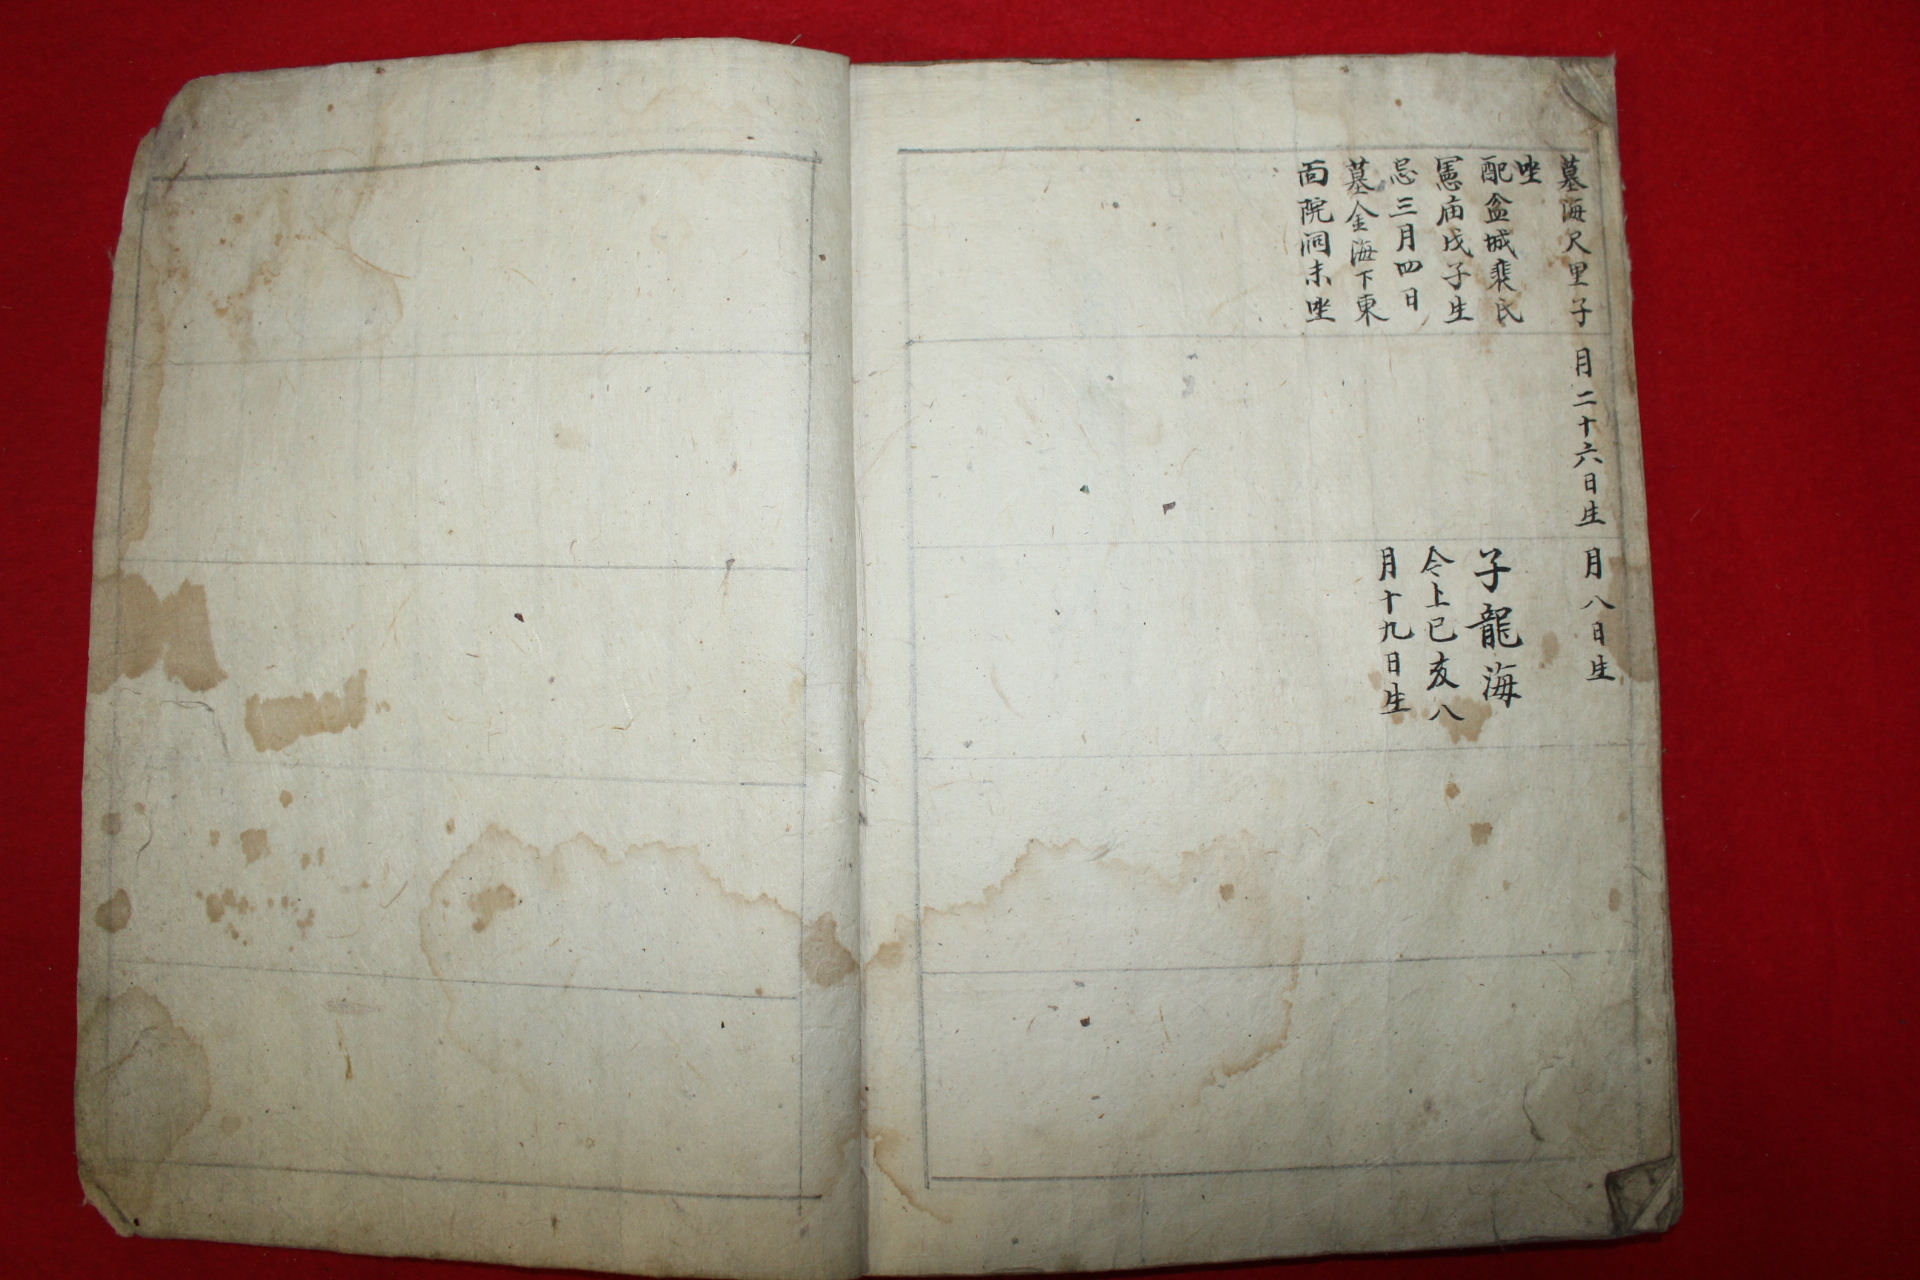 墓海尺里子
唑
配盆城裴氏
憲庙戊子生
忌三月四日
墓金海下東
面院洞未唑
月二十六日生
月八日生
子龍海
今上己亥八
月十九日生